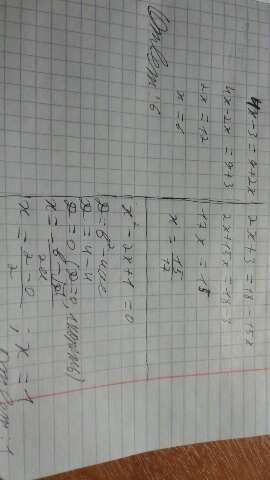 4x-3=9+2x
4x-2x=9+3
2x=12
x=6
Ответ: 6
2x+3=18-15x
2x+15x=18-3
17x=15
x=15/17
x²-2x+1=0
D=b²-4ac
D=4-4
D=0 (D=0, 1 корень)
x=
2a
x=2-0/2 ; x=1
Ответ: 1